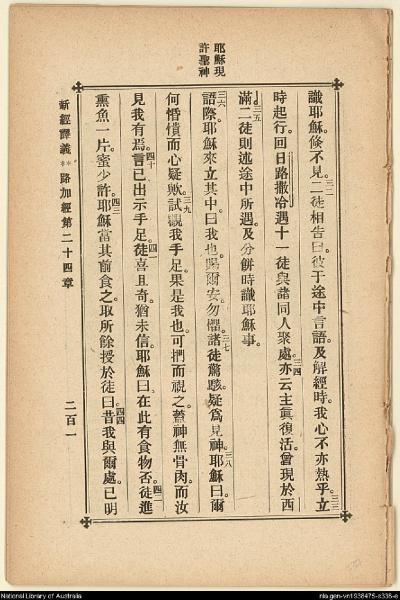 耶穌現
許聖神
識耶穌倏不見。三二二徒相告曰彼于途中言語及解經時我心不亦熱乎。三三立
時起行回日路撒冷遇十一徒與諸同人聚處。三四亦云主眞復活曾現於西
滿。三五二徒則述途中所遇及分餅時識耶穌事。
三六語際耶穌來立其中曰我也賜爾安勿懼。三七諸徒驚駭疑爲見神。三八耶穌曰爾
何惛憒而心疑歟。三九試觀我手足果是我也可捫而視之蓋神無骨肉而汝
見我有焉。四十言已出示手足。四一徒喜且奇猶未信耶穌曰在此有食物否。四二徒進
熏魚一片蜜少許。四三耶穌當其前食之取所餘授於徒。四四曰昔我與爾處已明
新經譯義 路加經第二十四章
二百一
National Library of Australia
nla.gen-vn1938475-s336-e